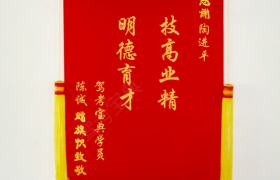 感谢陶进平
技高业精
明德育才
驾考宝典学员
陈诚赠旗帜致敬